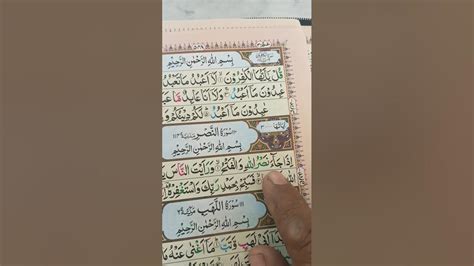 بِسْمِ اللهِ الرَّحْمٰنِ الرَّحِيْمِ
قُلْ يٰٓاَيُّهَا الْكٰفِرُوْنَ لَاۤ اَعْبُدُ مَا تَعْبُدُ
عٰبِدُوْنَ مَاۤ اَعْبُدُ وَلَاۤ اَنَا عَابِدٌ مَّا
عٰبِدُوْنَ مَاۤ اَعْبُدُ لَكُمْ دِيْنُكُمْ وَ
سُوْرَةُ النَّصْرِ
بِسْمِ اللهِ الرَّحْمٰنِ الرَّحِيْمِ
اِذَا جَآءَ نَصْرُ اللهِ وَالْفَتْحُ وَرَاَيْتَ النَّاسَ
فَسَبِّحْ بِحَمْدِ رَبِّكَ وَاسْتَغْفِرْهُ
سُوْرَةُ اللَّهَبِ
بِسْمِ اللهِ الرَّحْمٰنِ الرَّحِيْمِ
اَبِيْ لَهَبٍ وَّتَبَّ مَاۤ اَغْنٰى عَنْهُ